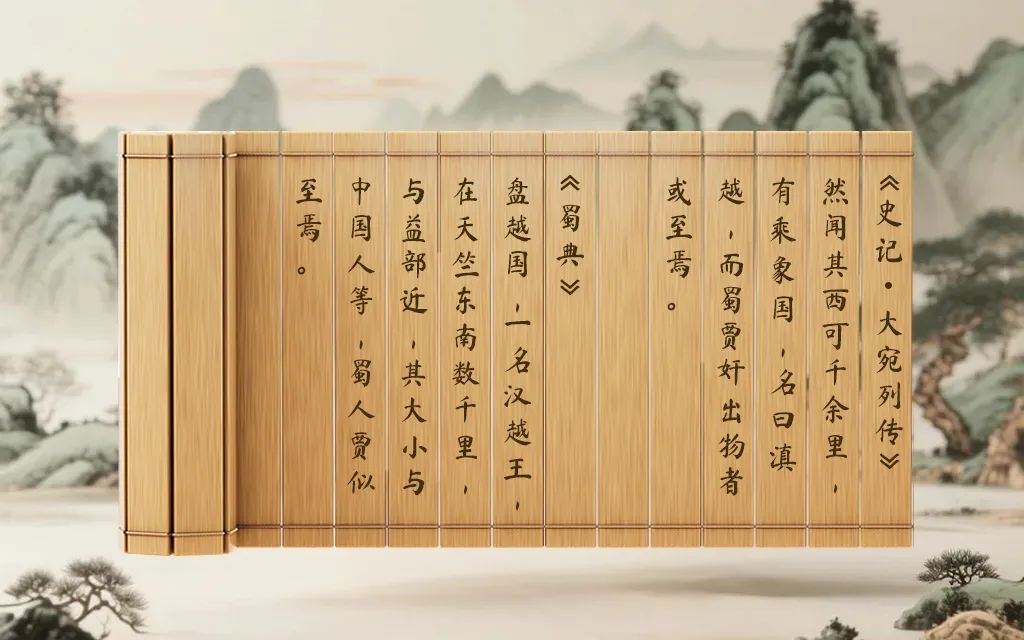 《史记·大宛列传》
然闻其西可千余里，
有乘象国，名曰滇
越，而蜀贾奸出物者
或至焉。
《蜀典》
盘越国，一名汉越王，
在天竺东南数千里，
与益部近，其大小与
中国人等，蜀人贾似
至焉。